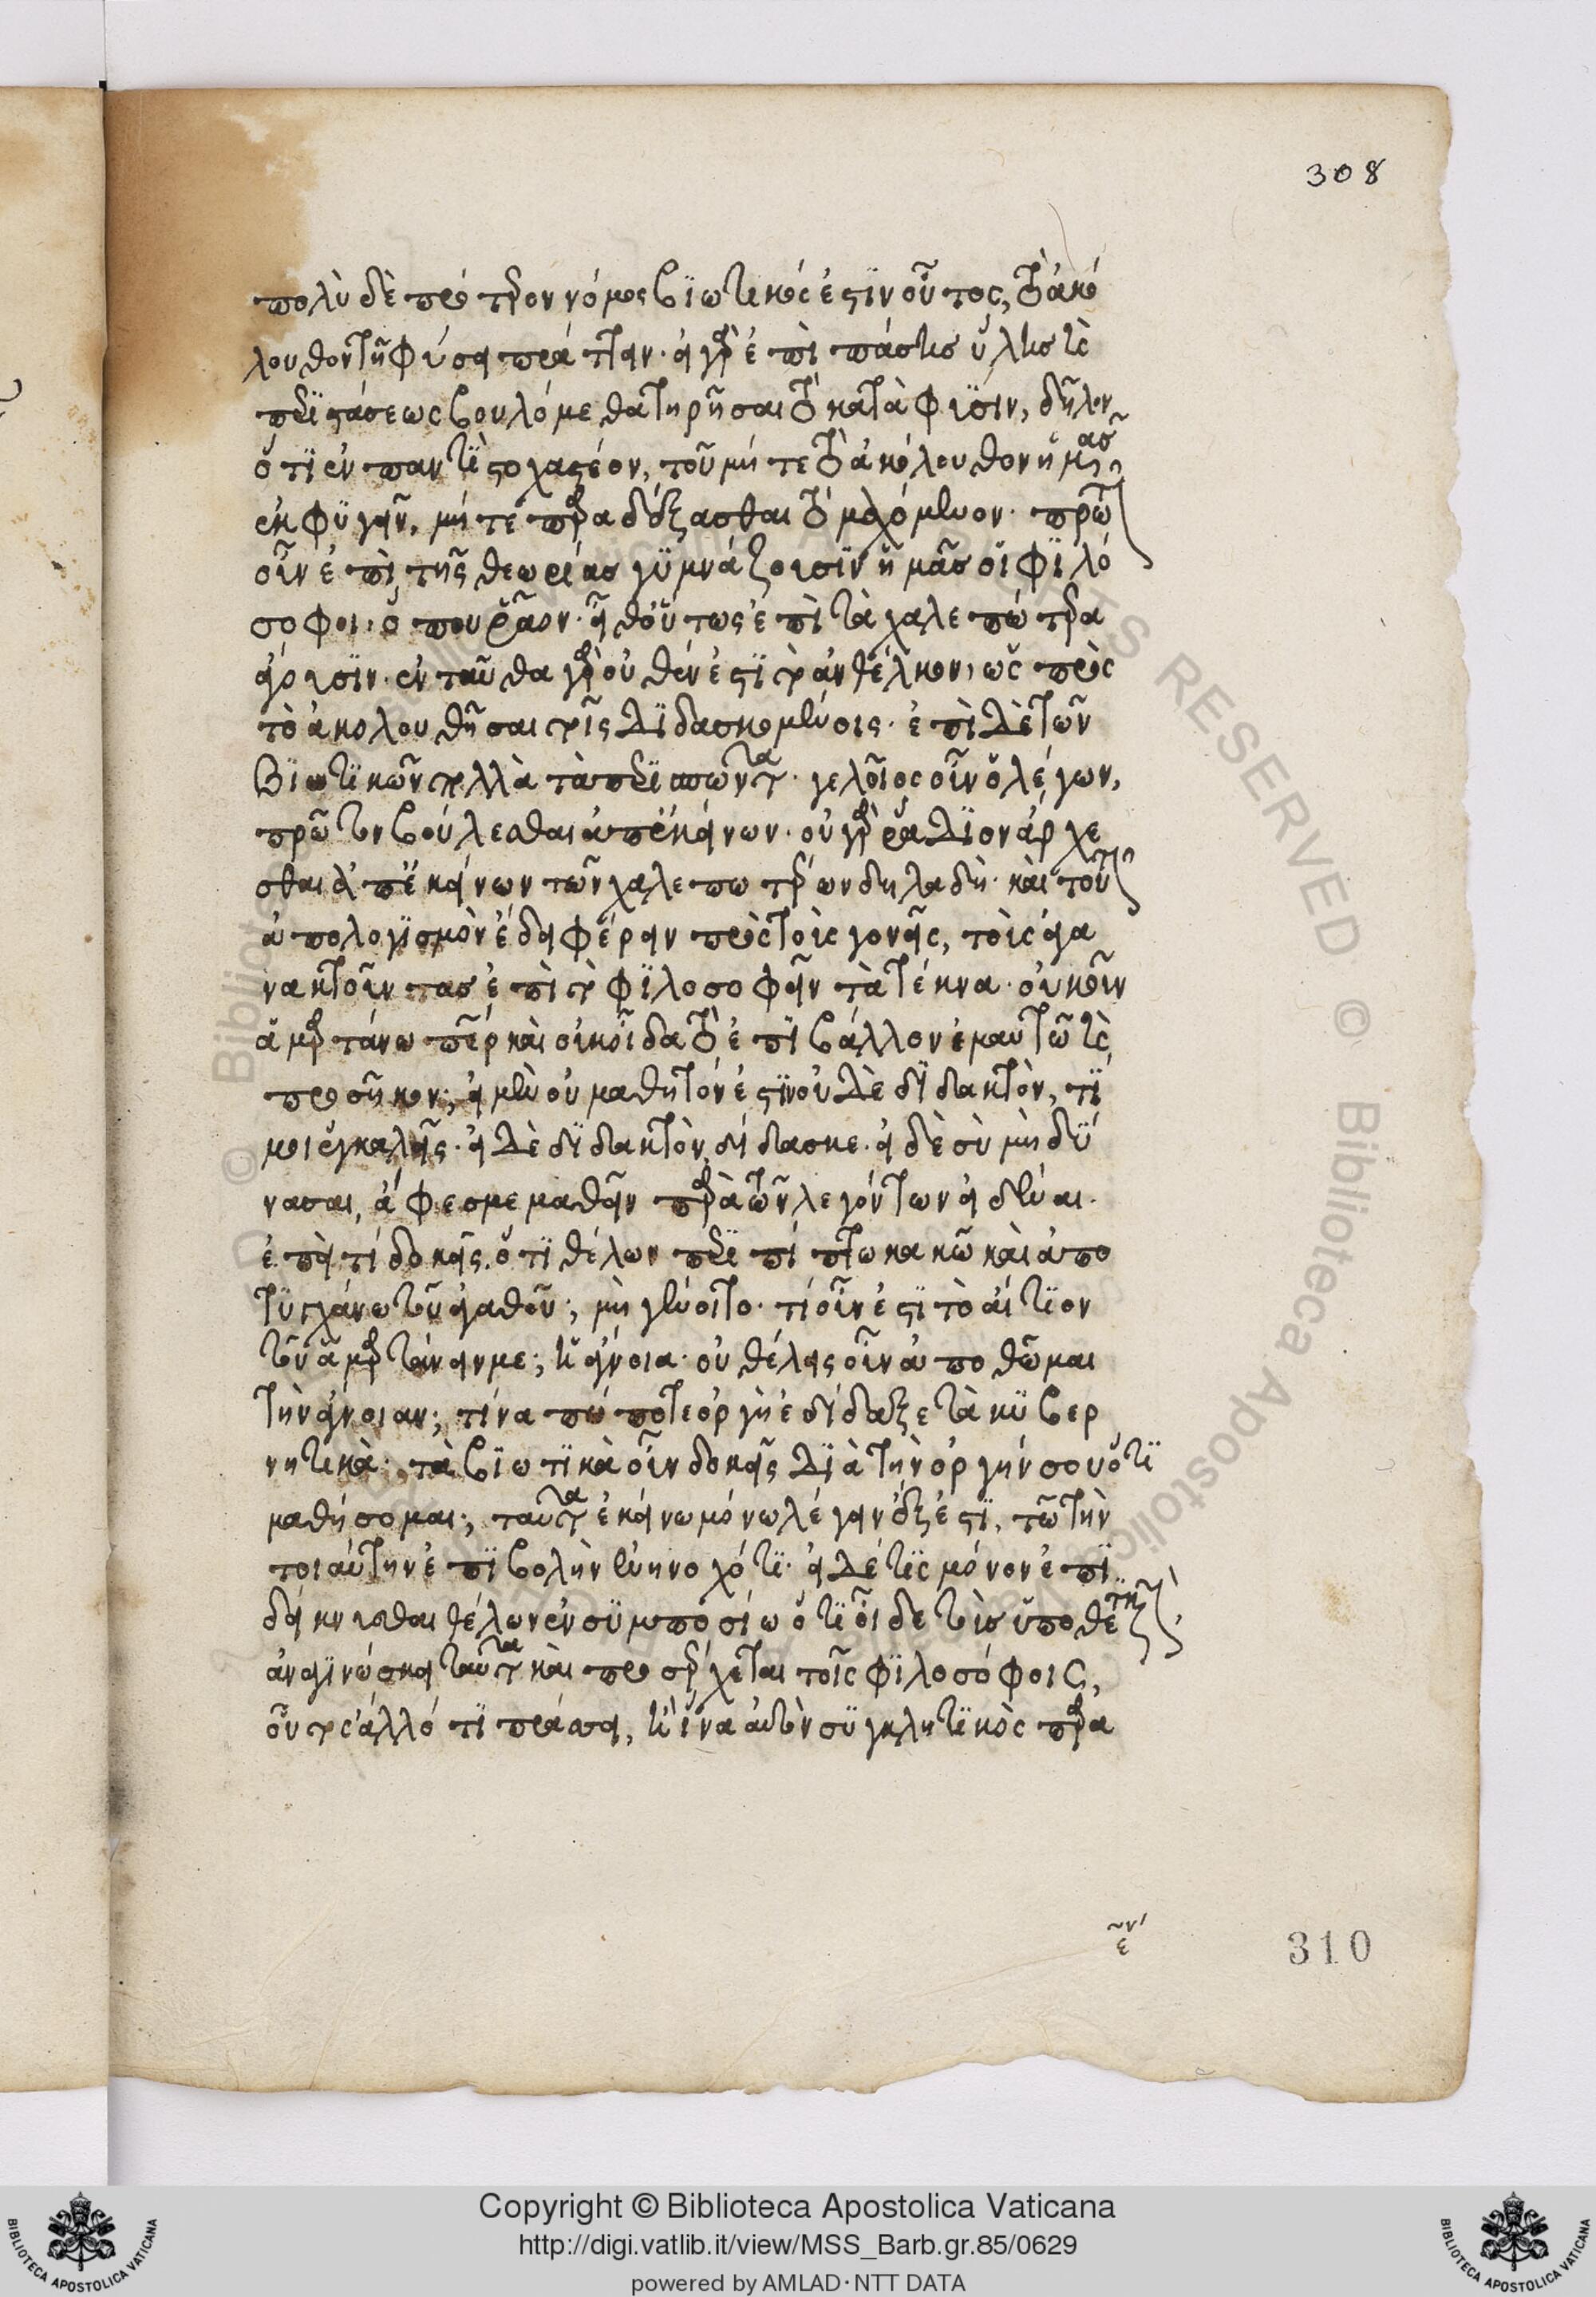 308
πολὺ δὲ πρότερον νόμος βιωτικός ἐστιν οὗτος, τὸ ἀκό
λουθον τῇ φύσει πράττειν· εἰ γὰρ ἐπὶ πάσης ὕλης κὶ
περιστάσεως βουλόμεθα τηρῆσαι τὸ κατὰ φύσιν, δῆλον
ὅτι ἐν παντὶ στοχαστέον, τοῦ μήτε τὸ ἀκόλουθον ἡμᾶς
ἐκφυγεῖν, μήτε παραδέξασθαι τὸ μαχόμενον· πρῶτον
οὖν ἐπὶ τῆς θεωρίας γυμνάζουσιν ἡμᾶς οἱ φιλό
σοφοι· ὅπου ῥᾷον· εἶθ' οὕτως ἐπὶ τὰ χαλεπώτερα
ἄγουσιν· ἐνταῦθα γὰρ οὐθέν ἐστι τὸ ἀνθέλκον, ὡς πρὸς
τὸ ἀκολουθῆσαι τοῖς διδασκομένοις· ἐπὶ δὲ τῶν
βιωτικῶν πολλὰ τὰ περισπῶντα· γελοῖος οὖν ὁ λέγων,
πρῶτον βούλεσθαι ἀπ' ἐκείνων· οὐ γὰρ ῥᾴδιον ἄρχε
σθαι ἀπ' ἐκείνων τῶν χαλεπωτέρων δηλαδή· καὶ τοῦτον
ἀπολογισμὸν ἔδει φέρειν πρὸς τοὺς γονεῖς, τοὺς ἀγα
νακτοῦντας ἐπὶ τῷ φιλοσοφεῖν τὰ τέκνα· οὐκοῦν
ἁμαρτάνω πάτερ καὶ οὐκ οἶδα τὸ ἐπιβάλλον ἐμαυτῷ κὶ
προσῆκον; εἰ μὲν οὐ μαθητόν ἐστιν οὐδὲ διδακτόν, τί
μοι ἐγκαλεῖς· εἰ δὲ διδακτὸν, δίδασκε· εἰ δὲ σὺ μὴ δύ
νασαι, ἄφες με μαθεῖν παρὰ τῶν λεγόντων εἰδέναι·
ἐπεὶ τί δοκεῖς, ὅτι θέλων περιπίπτω κακῷ καὶ ἀπο
τυγχάνω τοῦ ἀγαθοῦ; μὴ γένοιτο· τί οὖν ἐστι τὸ αἴτιον
τοῦ ἁμαρτάνειν με; ἡ ἄγνοια· οὐ θέλεις οὖν ἀποθῶμαι
τὴν ἄγνοιαν; τίνα πώποτε ὀργὴ ἐδίδαξε τὰ κυβερ
νητικά· τὰ βιωτικὰ οὖν δοκεῖς διὰ τὴν ὀργήν σου ὅτι
μαθήσομαι; ταῦτα ἐκείνῳ μόνῳ λέγειν ἔξεστι, τῷ τὴν
τοιαύτην ἐπιβολὴν ἐνηνοχότι· εἰ δέ τις μόνον ἐπι
δείκνυσθαι θέλων ἐν συμποσίῳ ὅτι οἶδε τοὺς ὑποθετικοὺς
ἀναγινώσκει ταῦτα καὶ προσέρχεται τοῖς φιλοσόφοις,
οὗτος ἄλλό τι πράσσει, ἢ ἵνα αὐτὸν συγκλητικὸς παρα
310